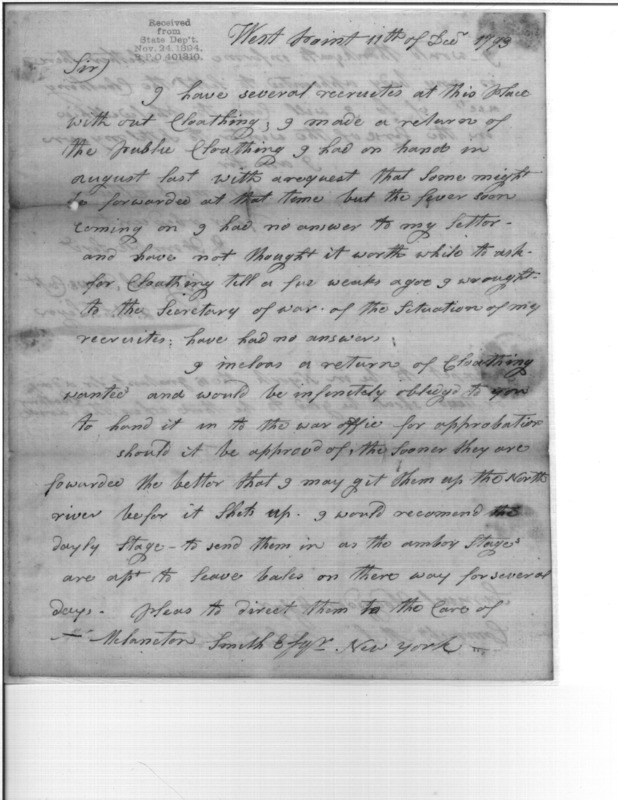 Received
from
State Dep't.
Nov. 24, 1894.
R.P.O. 401810.
West Point 11th of Decr 1793
Sir,
I have several recruetes at this Place
with out Cloathing; I made a return of
the Public Cloathing I had on hand in
august last with a request that Some might
be forwarded at that time but the fever soon
coming on I had no answer to my Letter -
and have not thought it worth while to ask -
for Cloathing till a fue weaks agoe I wrought
to the Secretary of war. of the Situation of my
recruites; have had no answer.
I inclose a return of Cloathing
wanted and would be infinitely obledgd to you
to hand it in to the war offie for approbation
should it be approvd of, the Sooner they are
fowarded the better that I may git them up the North
river befor it Shets up. I would recomend the
dayly Stage - to send them in as the amboy Stages
are apt to leave bales on there way for several
days. Pleas to direct them to the Care of
Melancton Smith Esqr. New York